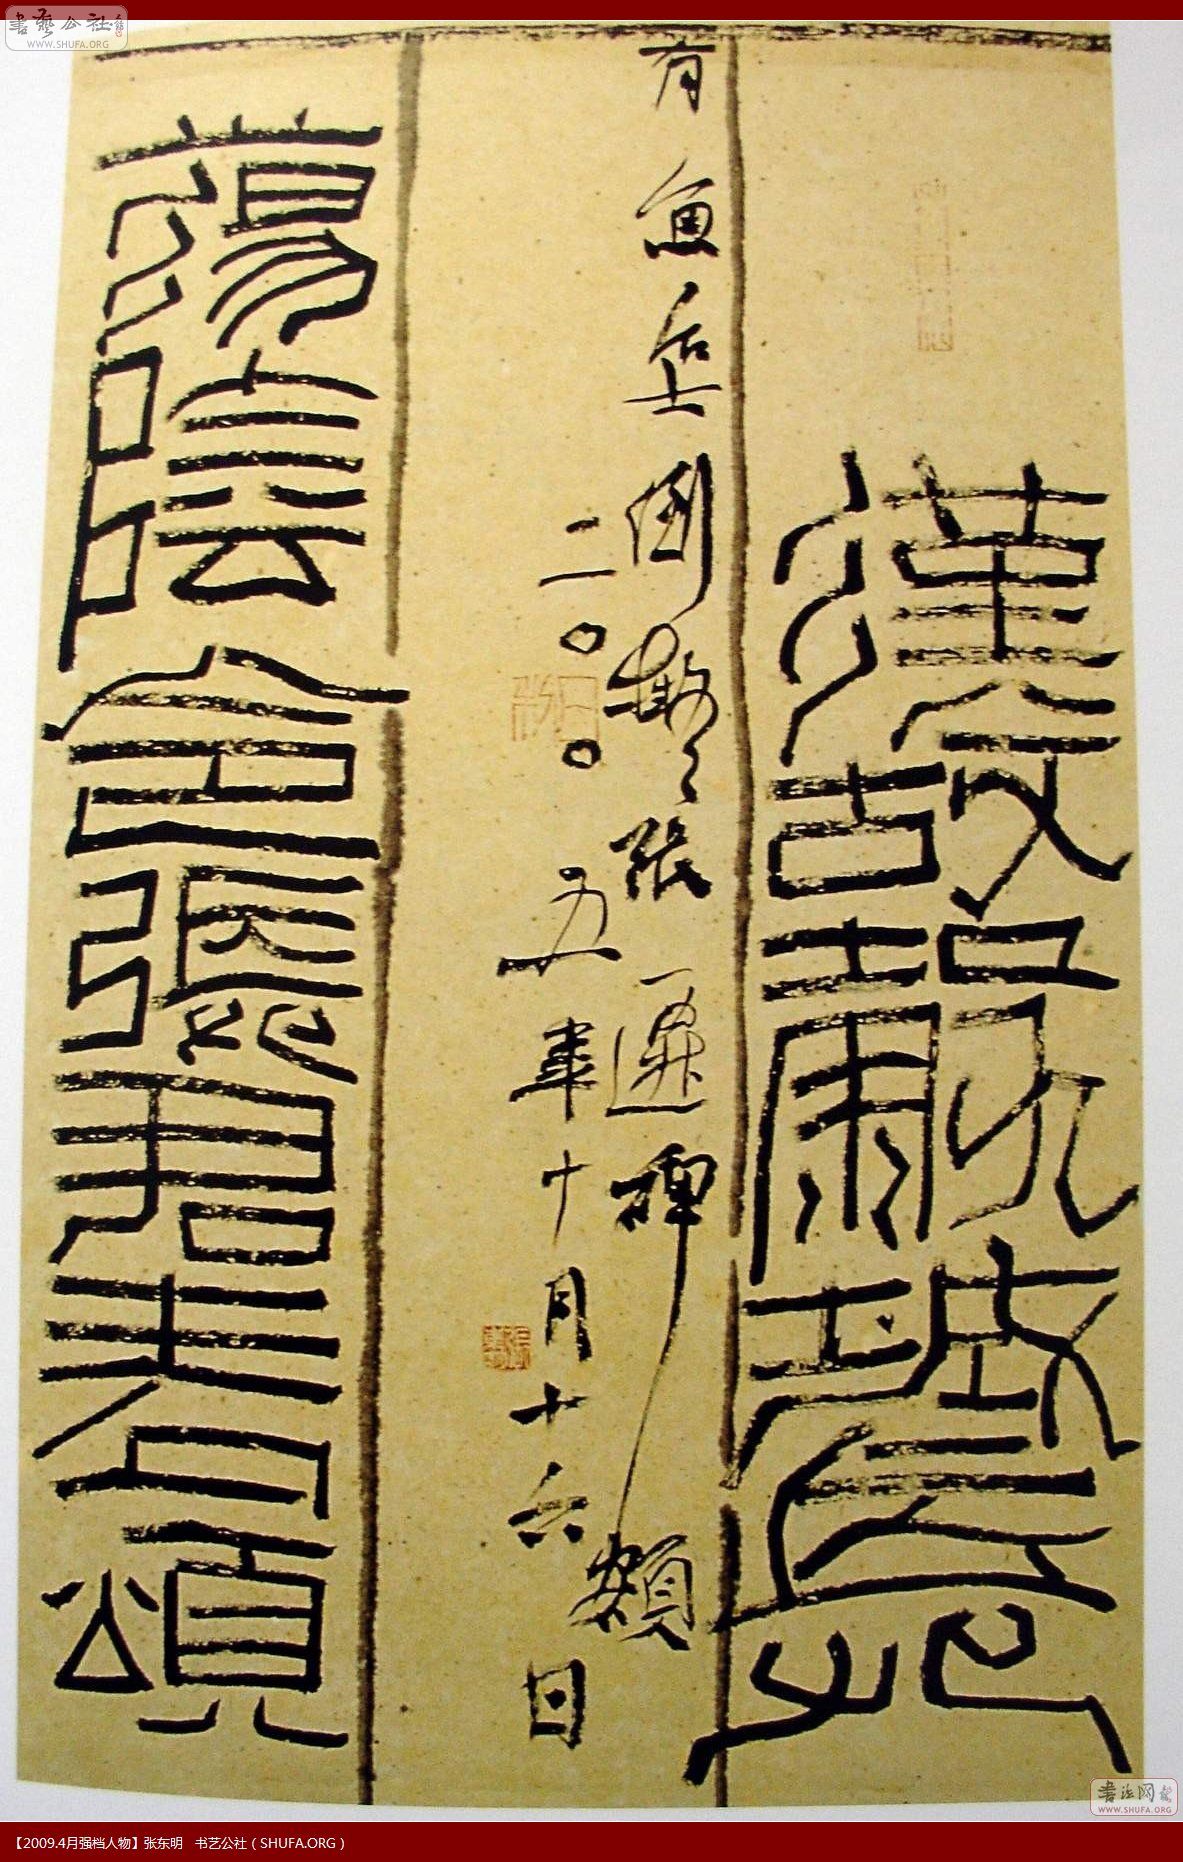 書藝公社
WWW.SHUFA.ORG
漢故穀城長
有魚 倒擬 張遷碑額
二〇〇五年十月十六日
蕩陰令張君表頌
書法网
WWW.SHUFA.ORG
【2009.4月强档人物】张东明 书艺公社（SHUFA.ORG）